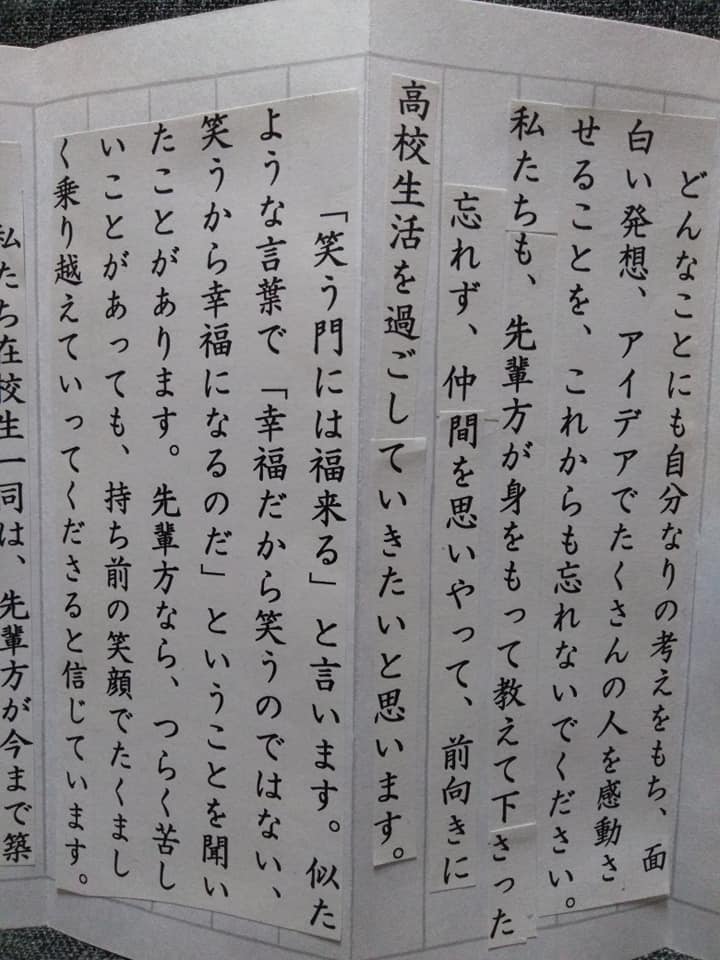 どんなことにも自分なりの考えをもち、面
白い発想、アイデアでたくさんの人を感動さ
せることを、これからも忘れないでください。
私たちも、先輩方が身をもって教えて下さった
忘れず、仲間を思いやって、前向きに
高校生活を過ごしていきたいと思います。
「笑う門には福来る」と言います。似た
ような言葉で「幸福だから笑うのではない、
笑うから幸福になるのだ」ということを聞い
たことがあります。先輩方なら、つらく苦し
いことがあっても、持ち前の笑顔でたくまし
く乗り越えていってくださると信じています。
私たち在校生一同は、先輩方が今まで築